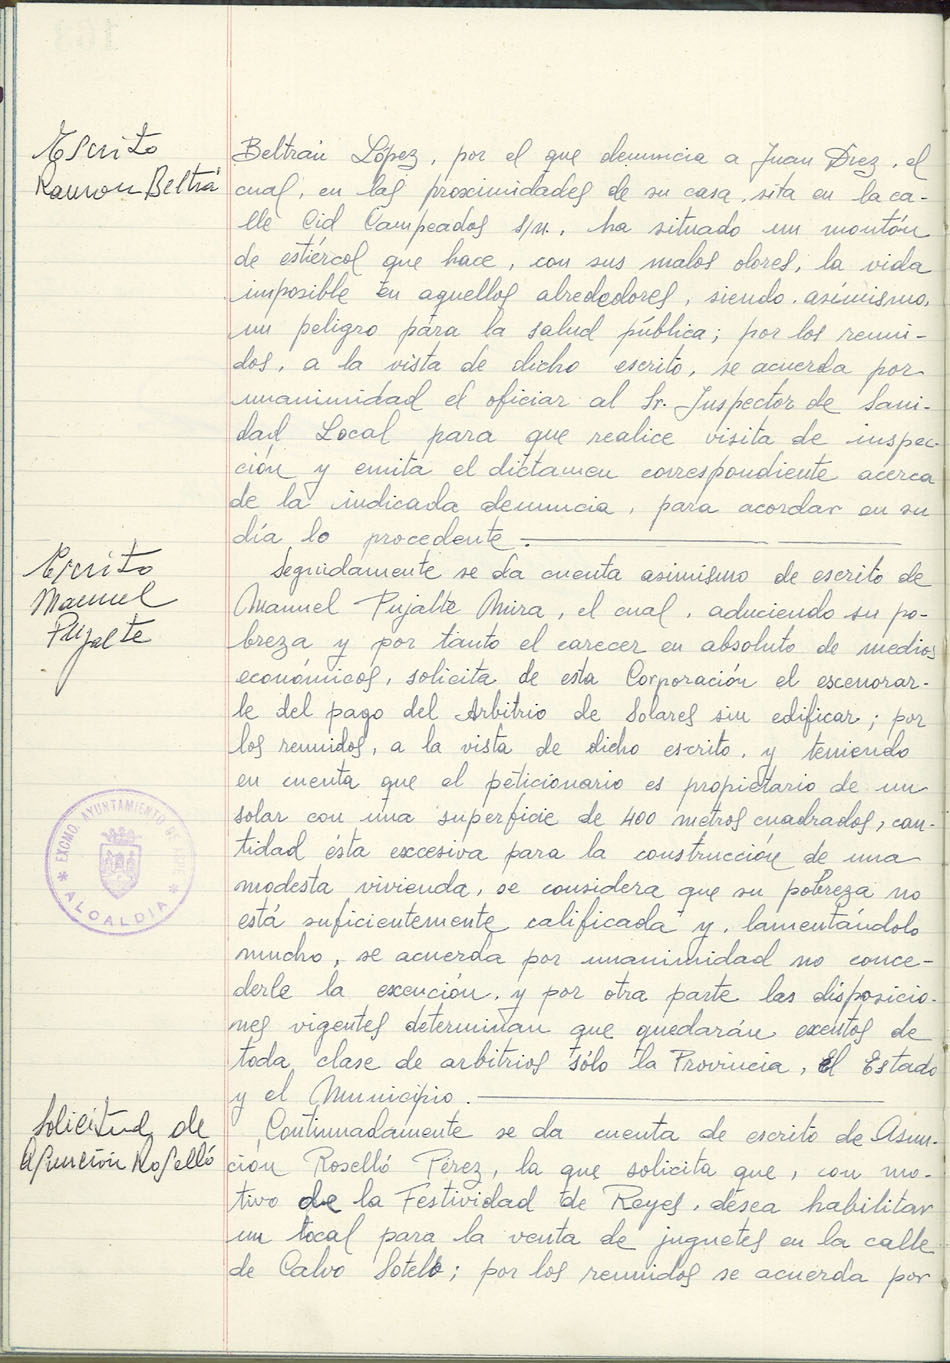 Escrito
Ramon Beltrá
Beltrán López, por el que denuncia a Juan Díez, el
cual, en las proximidades de su casa, sita en la ca-
lle Cid Campeados s/n., ha situado un montón
de estiércol que hace, con sus malos olores, la vida
imposible en aquellos alrededores, siendo, asimismo,
un peligro para la salud pública; por los reuni-
dos, a la vista de dicho escrito, se acuerda por
unanimidad el oficiar al Sr. Inspector de Sani-
dad Local para que realice visita de inspec-
ción y emita el dictamen correspondiente acerca
de la indicada denuncia, para acordar en su
día lo procedente.
Escrito
Manuel
Pujalte
Seguidamente se da cuenta asimismo de escrito de
Manuel Pujalte Mira, el cual, aduciendo su po-
breza y por tanto el carecer en absoluto de medios
económicos, solicita de esta Corporación el escenorar-
le del pago del Arbitrio de Solares sin edificar; por
los reunidos, a la vista de dicho escrito, y teniendo
en cuenta que el peticionario es propietario de un
solar con una superficie de 400 metros cuadrados, can-
tidad ésta excesiva para la construcción de una
modesta vivienda, se considera que su pobreza no
está suficientemente calificada y, lamentándolo
mucho, se acuerda por unanimidad no conce-
derle la exención, y por otra parte las disposicio-
nes vigentes determinan que quedarán exentos de
toda clase de arbitrios sólo la Provincia, el Estado
y el Municipio.
EXCMO. AYUNTAMIENTO DE
* ALCALDIA *
Solicitud de
Asunción Roselló
Continuadamente se da cuenta de escrito de Asun-
ción Roselló Pérez, la que solicita que, con mo-
tivo de la Festividad de Reyes, desea habilitar
un local para la venta de juguetes en la calle
de Calvo Sotelo; por los reunidos se acuerda por